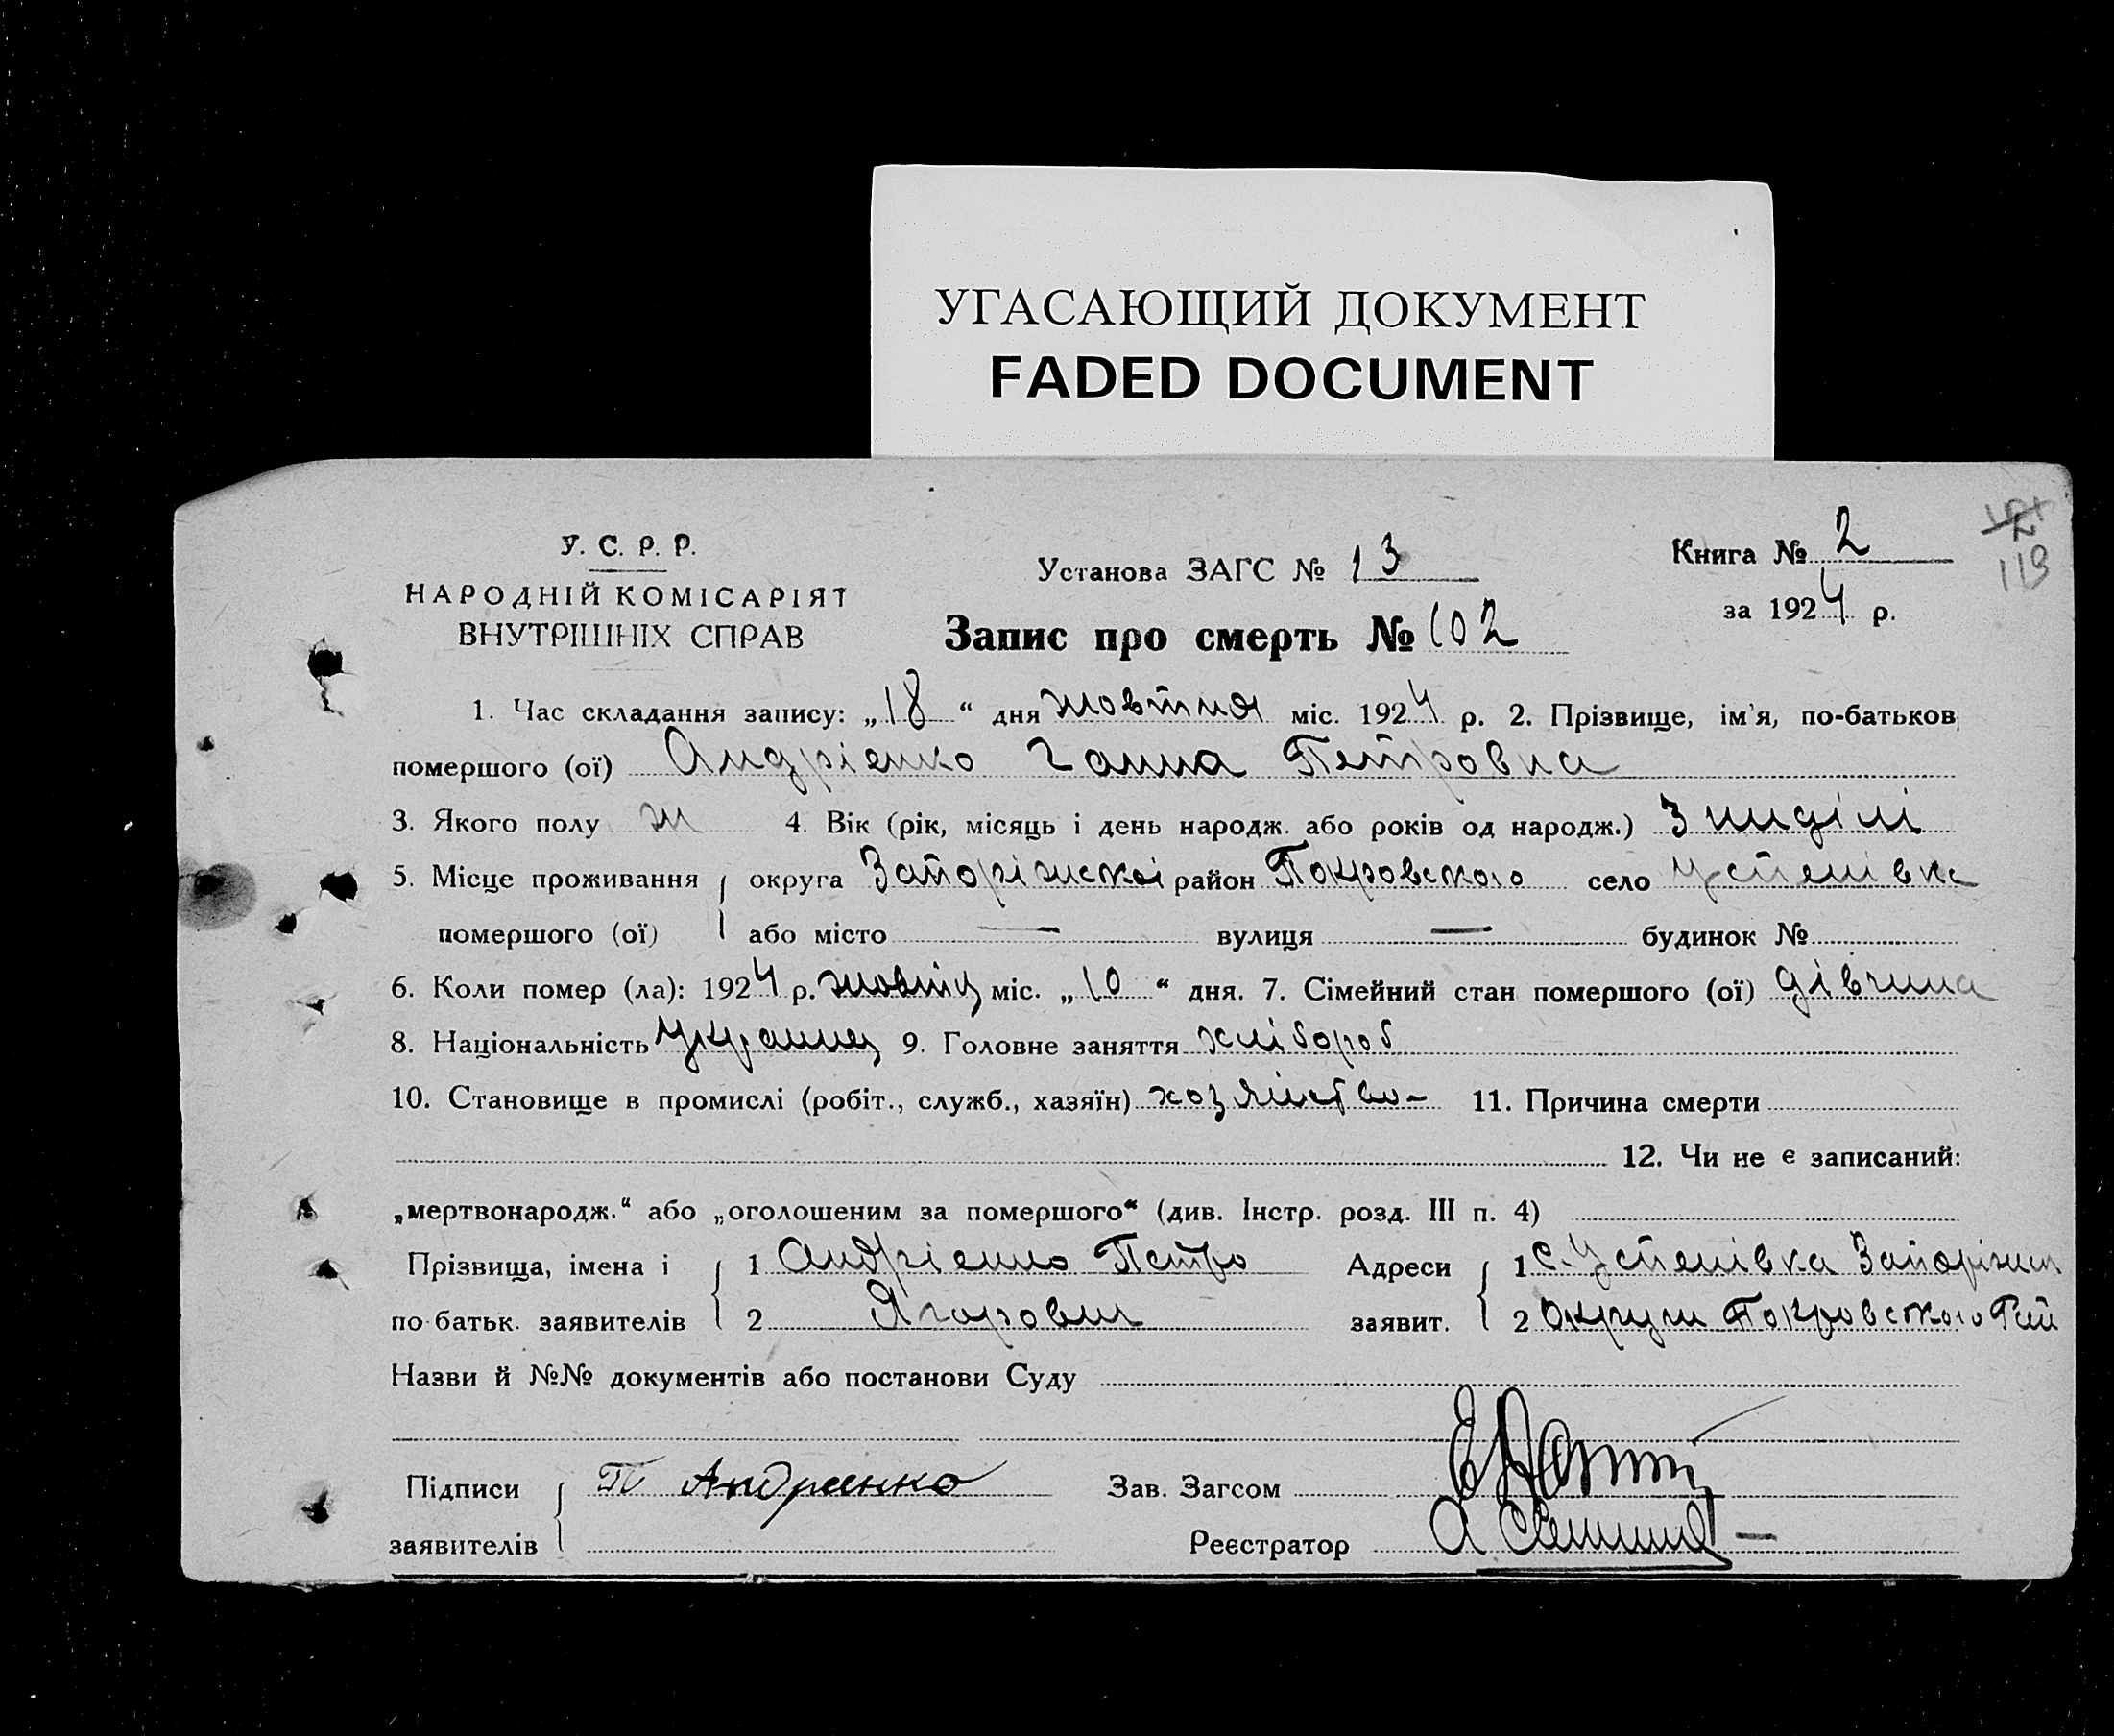 УГАСАЮЩИЙ ДОКУМЕНТ
FADED DOCUMENT
У. С. Р. Р.
НАРОДНІЙ КОМІСАРІЯТ
ВНУТРІШНІХ СПРАВ
Установа ЗАГС № 13
Запис про смерть № 102
Книга № 2
за 1924 р.
119
1. Час складання запису: „18“ дня жовтня міс. 1924 р. 2. Прізвище, ім'я, по-батькові
помершого (ої) Андрієнко Ганна Петровна
3. Якого полу ж 4. Вік (рік, місяць і день народж. або років од народж.) 3 ниділі
5. Місце проживання округа Запоріжскої район Покровського село Успенівка
помершого (ої) або місто — вулиця — будинок №
6. Коли помер (ла): 1924 р. міс. „10“ дня. 7. Сімейний стан помершого (ої) дівчина
8. Національність 9. Головне заняття хлібороб
10. Становище в промислі (робіт., служб., хазяїн) 11. Причина смерти
12. Чи не є записаний:
„мертвонародж.“ або „оголошеним за помершого“ (див. Інстр. розд. III п. 4)
Прізвища, імена і 1 Андрієнко Петро Адреси 1 с. Успенівка
по батьк. заявителів 2 Ягорович заявит. 2 Округи Покровського
Назви й №№ документів або постанови Суду
Підписи П Андриенко Зав. Загсом
заявителів Реєстратор